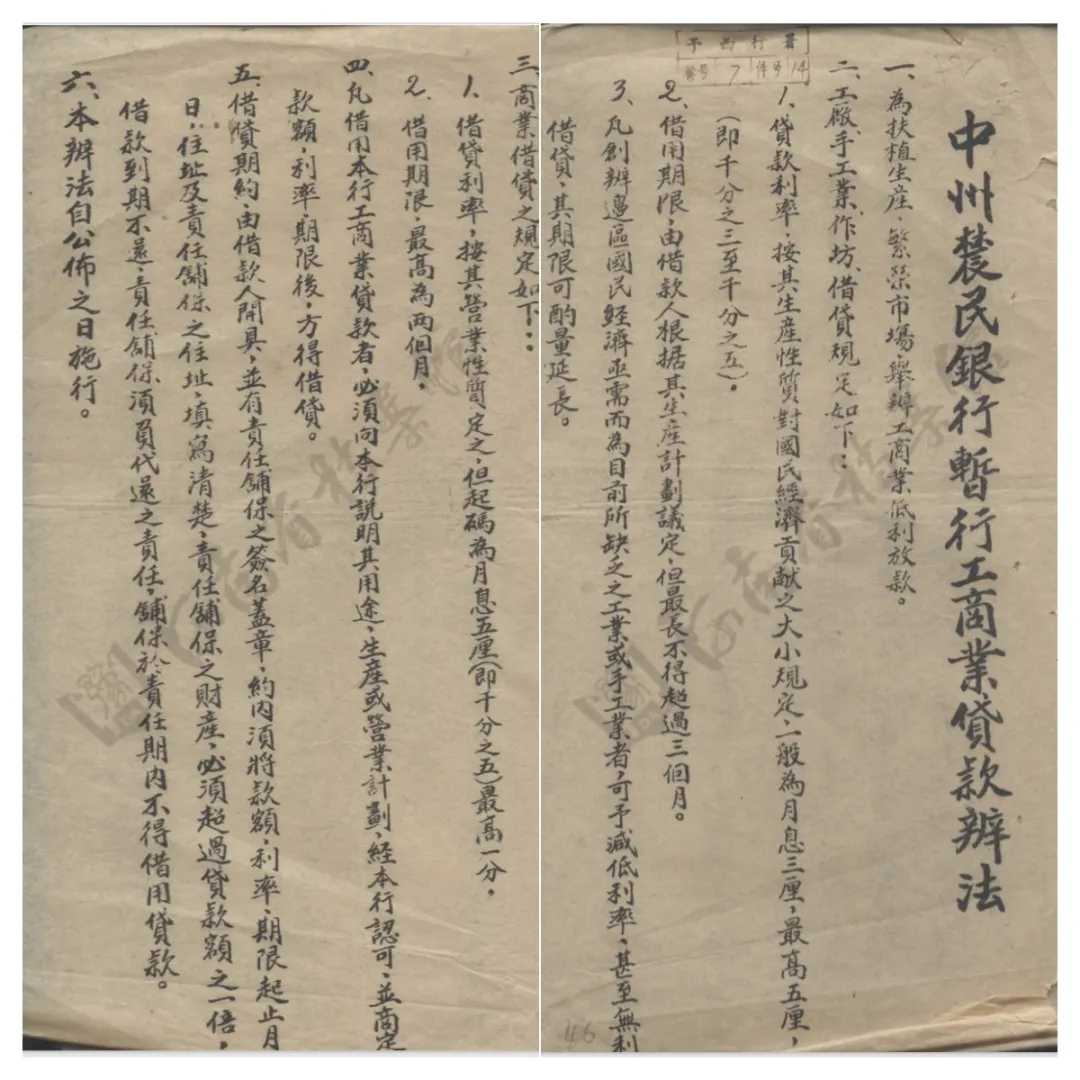 中州農民銀行暫行工商業貸款辦法
一、為扶植生産、繁榮市場、舉辦工商業低利放款。
二、工廠、手工業、作坊、借貸規定如下：
1、貸款利率，按其生産性質對國民經濟貢献之大小規定、一般為月息三厘，最高五厘，
（即千分之三至千分之五）。
2、借用期限，由借款人根据其生産計劃議定，但最長不得超過三個月。
3、凡創辦邊區國民經濟亟需而為目前所缺乏之工業或手工業者，可予減低利率、甚至無利
借貸，其期限可酌量延長。
三、商業借貸之規定如下：
1、借貸利率，按其營業性質定之，但起碼為月息五厘（即千分之五）最高一分，
2、借用期限，最高為兩個月，
四、凡借用本行工商業貸款者，必須向本行説明其用途，生産或營業計劃，経本行認可，並商定
款額，利率，期限後，方得借貸。
五、借貸期約，由借款人開具，並有責任舖保之簽名蓋章，約内須將款額，利率、期限起止月
日，住址及責任舖保之住址，填寫清楚，責任舖保之財産，必須超過貸款額之一倍，
借款到期不還，責任舖保須負代還之責任，舖保於責任期内不得借用貸款。
六、本辦法自公佈之日施行。
予西行署
卷号 7 件号 14
46
河南省档案馆